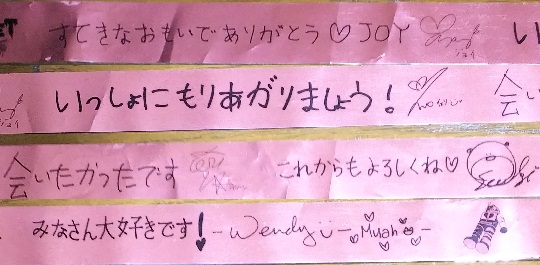 ET すてきなおもいでありがとう♡JOY い
いっしょにもりあがりましょう! 会い
会いたかったです これからもよろしくね♡
みなさん大好きです! -Wendyü- Muah -